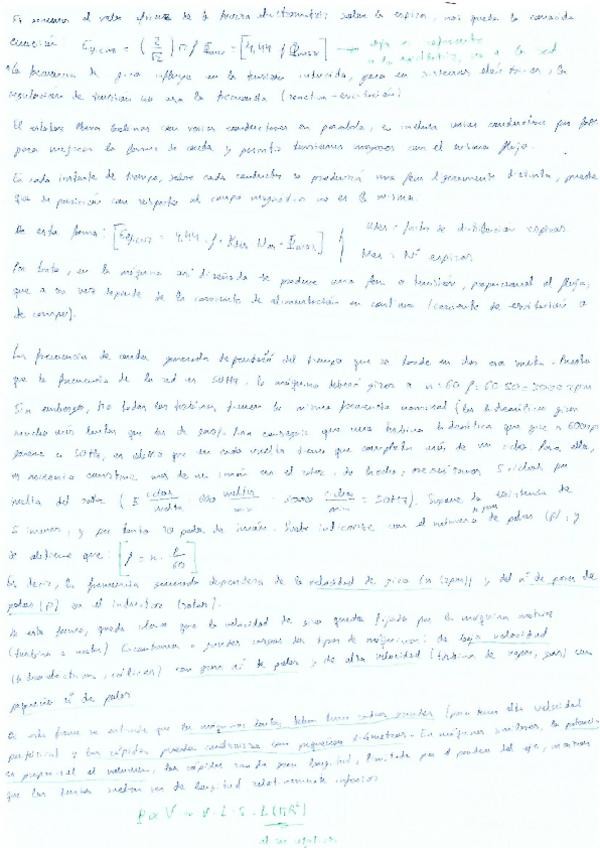 el valor eficaz de la fuerza electromotriz sobre la espira, nos queda la conocida
ecuación E = (2/√2) π f Φmax = [4,44 f Φmax] →
La frecuencia de giro influye en la tensión inducida, pero en sistemas eléctricos, la
regulación de tensión no usa la frecuencia (reactiva-excitación)
El estator lleva bobinas con varios conductores en paralelo, e incluso varios conductores por fase
para mejorar la forma de onda y permitir tensiones mayores con el mismo flujo.
En cada instante de tiempo, sobre cada conductor se producirá una fem ligeramente distinta, puesto
que su posición con respecto al campo magnético no es la misma.
De esta forma: [E = 4,44 · f · Kdes · Nes · Φmax] Kdes = factor de distribución espiras
Nes = Nº espiras
Por tanto, en la máquina así diseñada se produce una fem o tensión, proporcional al flujo,
que a su vez depende de la corriente de alimentación en continua (corriente de excitación o
de campo).
La frecuencia de onda generada dependerá del tiempo que se tarde en dar esa vuelta. Puesto
que la frecuencia de la red es 50Hz, la máquina deberá girar a n = 60 f = 60·50 = 3000 rpm
Sin embargo, no todas las turbinas tienen la misma frecuencia nominal (las hidráulicas giran
mucho más lentas que las de gas). Para conseguir que una turbina hidráulica que gira a 600 rpm
genere a 50Hz, en cada vuelta tiene que completar más de un ciclo. Para ello,
es necesario construir más de un imán en el rotor. De hecho, necesitamos 5 ciclos por
vuelta del rotor (5 ciclos/vuelta · 600 vueltas/min = 3000 ciclos/min = 50Hz). Supone la existencia de
5 imanes, y por tanto 10 polos de imán. Suele indicarse con el número de pares de polos (p), y
se obtiene que: [f = n · p/60]
Es decir, la frecuencia generada dependerá de la velocidad de giro (n (rpm)) y del nº de pares de
polos (p) en el inductor (rotor).
De esta forma, queda claro que la velocidad de giro queda fijada por la máquina motriz
(turbina o motor). Encontramos a grandes rasgos dos tipos de máquinas: de baja velocidad
(hidroeléctricas, eólicas) con gran nº de polos, y de alta velocidad (turbina de vapor, gas) con
pequeño nº de polos
De esta forma se entiende que las máquinas lentas deben tener radios grandes (para tener alta velocidad
periférica) y las rápidas pueden construirse con pequeños diámetros. En máquinas similares, la potencia
es proporcional al volumen, las rápidas son de gran longitud, limitada por el pandeo del eje, mientras
que las lentas suelen ser de longitud relativamente inferior
P α V